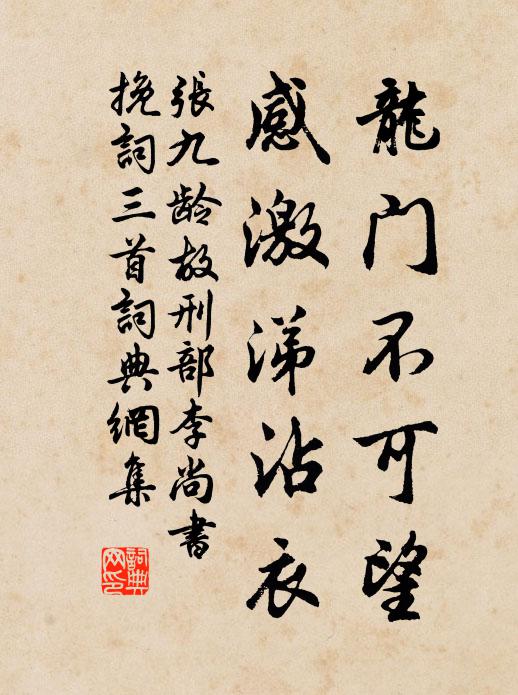 龍门不可望
感激涕沾衣
張九齡故刑部李尚書
挽詞三首詞典網集
詞典
网印